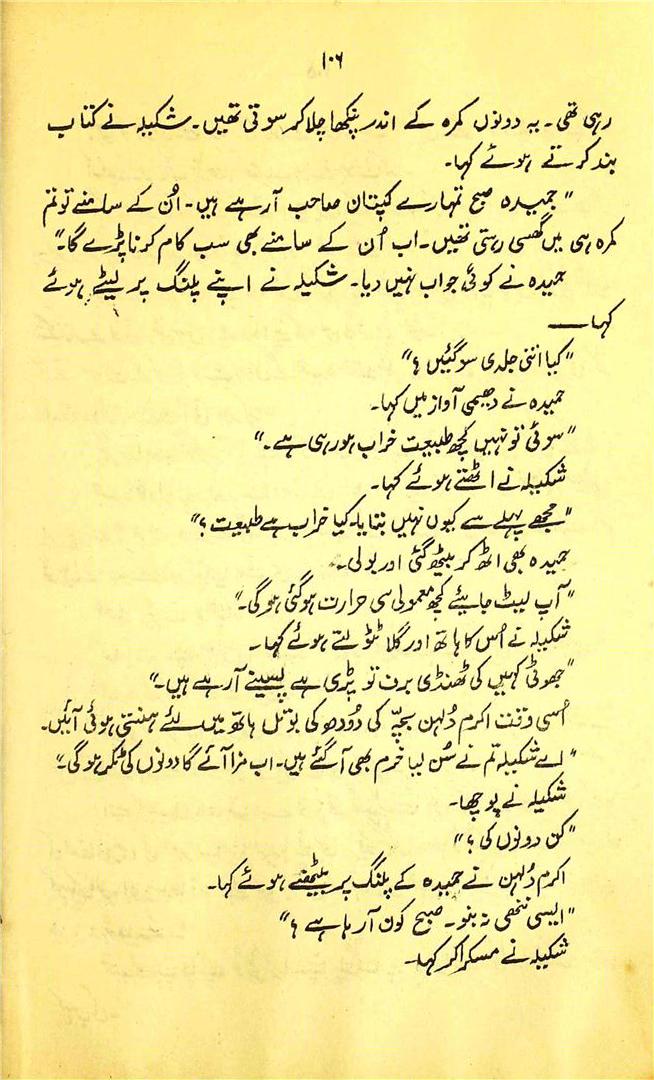 ۱۰۶
رہی تھی۔ یہ دونوں کمرہ کے اندر پنکھا چلا کر سوتی تھیں۔ شکیلہ نے کتاب
بند کرتے ہوئے کہا۔
"حمیدہ صبح تمہارے کپتان صاحب آرہے ہیں۔ اُن کے سامنے تو تم
کمرہ ہی میں گھسی رہتی تھیں۔ اب اُن کے سامنے بھی سب کام کرنا پڑے گا۔"
حمیدہ نے کوئی جواب نہیں دیا۔ شکیلہ نے اپنے پلنگ پر لیٹے ہوئے
کہا——
"کیا اتنی جلدی سوگئیں؟"
حمیدہ نے دھیمی آواز میں کہا۔
"سوئی تو نہیں کچھ طبیعت خراب ہورہی ہے۔"
شکیلہ نے اٹھتے ہوئے کہا۔
"مجھے پہلے سے کیوں نہیں بتایا۔ کیا خراب ہے طبیعت؟"
حمیدہ بھی اٹھ کر بیٹھ گئی اور بولی۔
"آپ لیٹ جایئے کچھ معمولی سی حرارت ہوگئی ہوگی۔"
شکیلہ نے اُس کا ہاتھ اور گلا ٹٹولتے ہوئے کہا۔
"جھوٹی کہیں کی ٹھنڈی برف تو پڑی ہے پسینے آرہے ہیں۔"
اُسی وقت اکرم دُلہن بچّہ کی دُودھ کی بوتل ہاتھ میں لئے ہنستی ہوئی آئیں۔
"اے شکیلہ تم نے سُن لیا خرم بھی آگئے ہیں۔ اب مزا آئے گا دونوں کی ٹکر ہوگی۔"
شکیلہ نے پوچھا۔
"کن دونوں کی؟"
اکرم دُلہن نے حمیدہ کے پلنگ پر بیٹھتے ہوئے کہا۔
"ایسی ننھی نہ بنو۔ صبح کون آرہا ہے؟"
شکیلہ نے مسکرا کر کہا۔